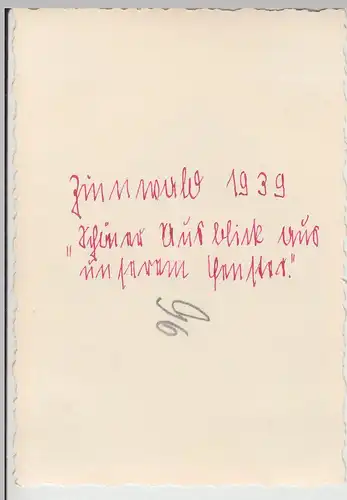 Zinnwald 1939
„Schöner Ausblick aus
unserem Fenster."
96